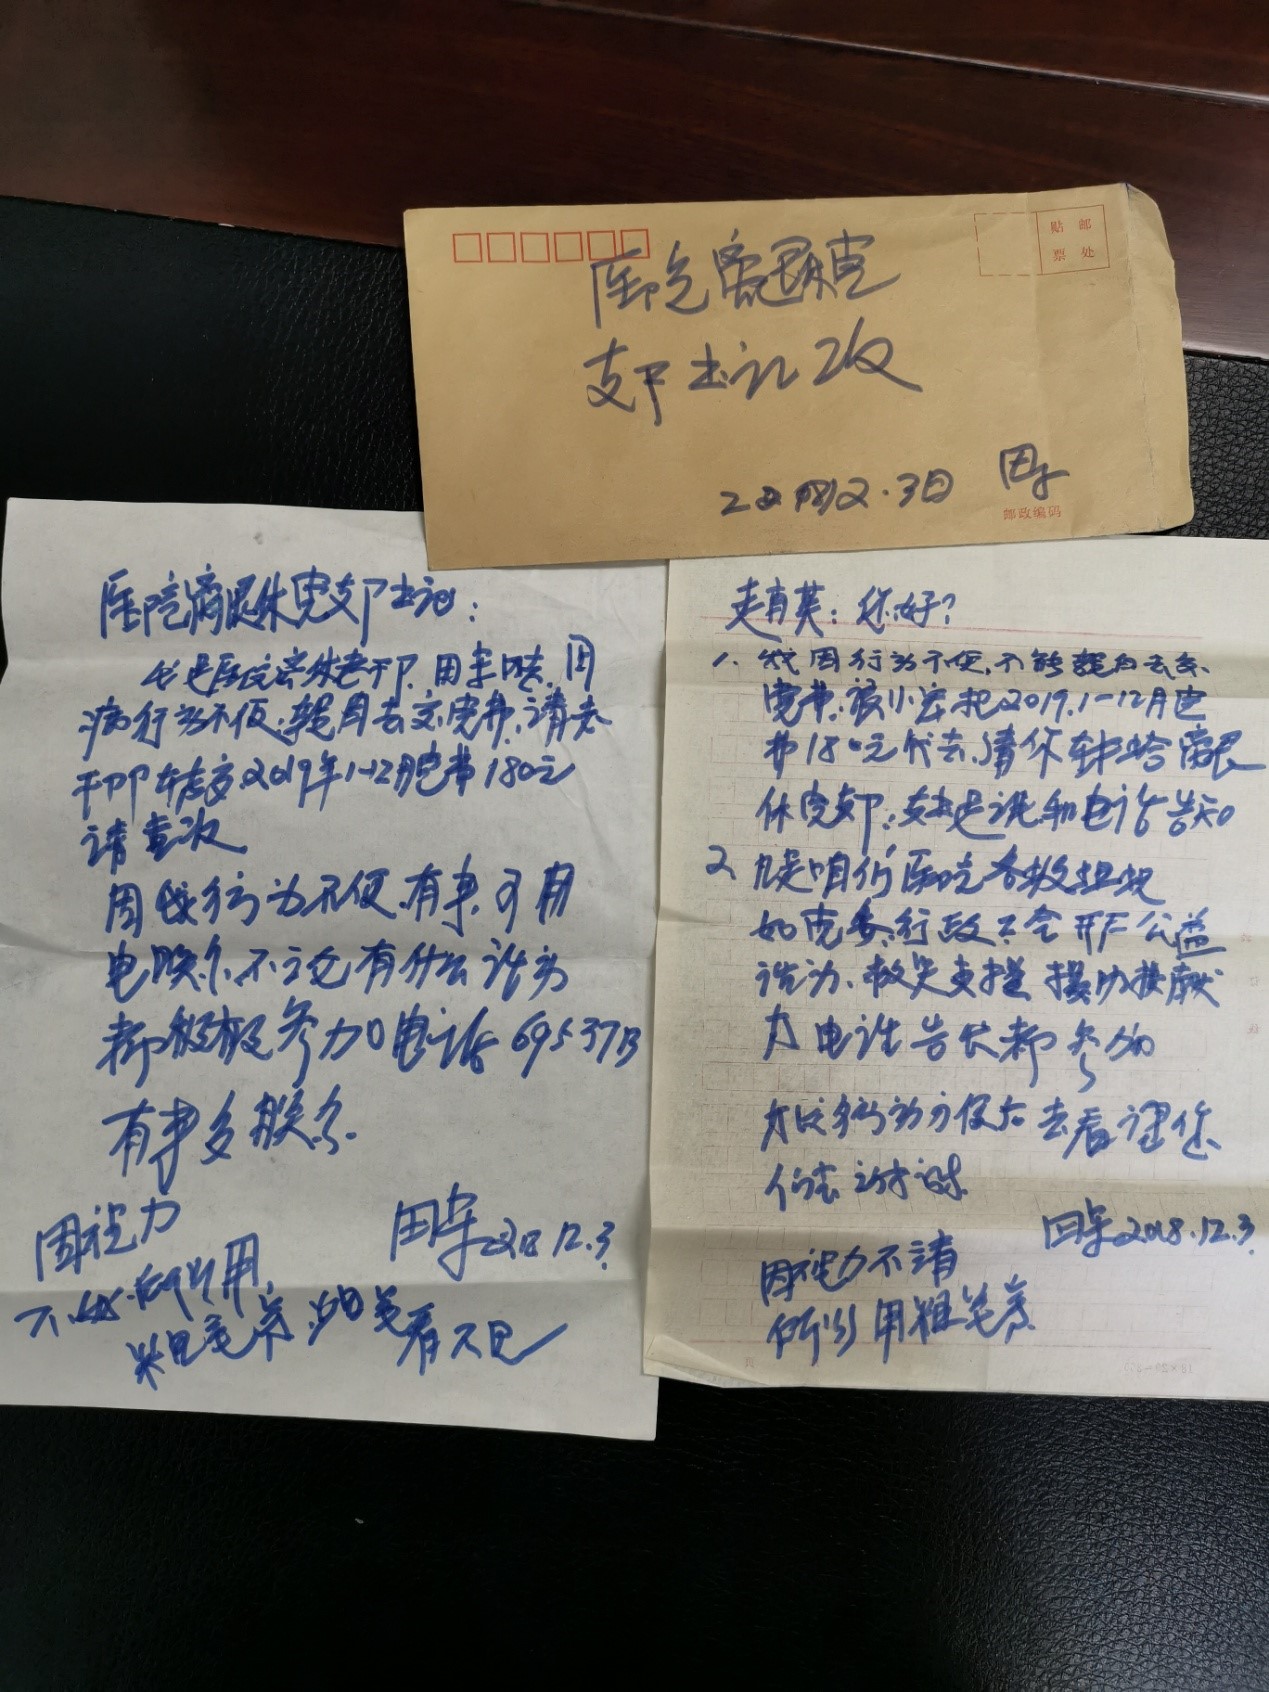 贴 邮
票 处
医院离退休党
支部书记收
2018.12.3日 田牢
邮政编码
医院离退休党支部书记:
我是医院离休老干部 田牢 因
病行动不便,亲自去交党费,请老
干部 转交2019年1-12月党费180元
请查收
因我行动不便,有事可用
电联系,不论有什么活动
都积极参加 电话 69537
有事多联系.
田牢 2018.12.3
因视力
不好.所以用
粗笔写,细笔看不见
英:您好?
1.我因行动不便,不能亲自去交
党费,该 把2019.1-12月党
费180元代去,请你转给离退
休党支部, 和电话告知
2.凡是咱们医院各级组织
如党委.行政.工会 开 公益
活动.救灾支援 援助捐献
电话告 都参加
行动方便后 去看望您
们 谢谢
田牢2018.12.3.
因视力不清
所以用粗笔写.